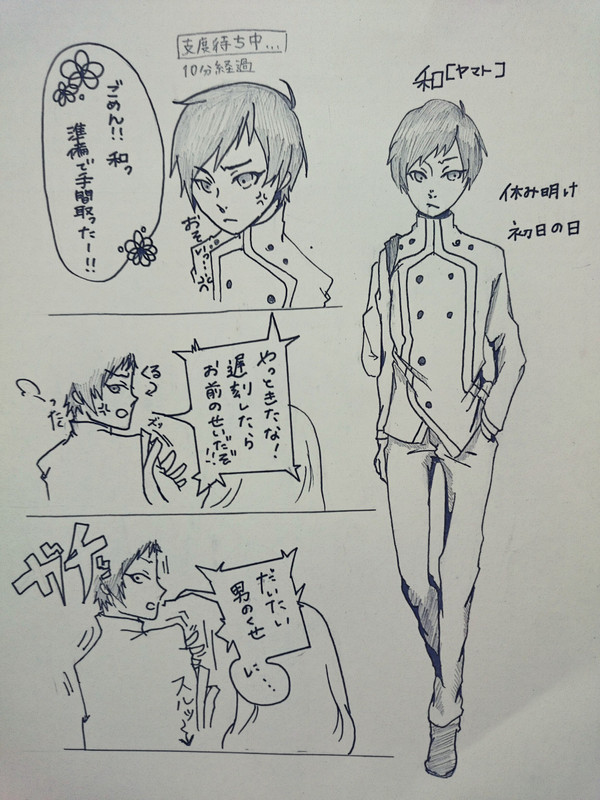 支度待ち中...
10分経過
ごめん!! 和っ
準備で手間取ったー!!
おそいっ...
和[ヤマト]
休み明け
初日の日
やっときたな!
遅刻したら
お前のせいだぞ!!
くる
ったく
ズッ
ガチャッ
だいたい
男のくせ
に...
スルッ〜